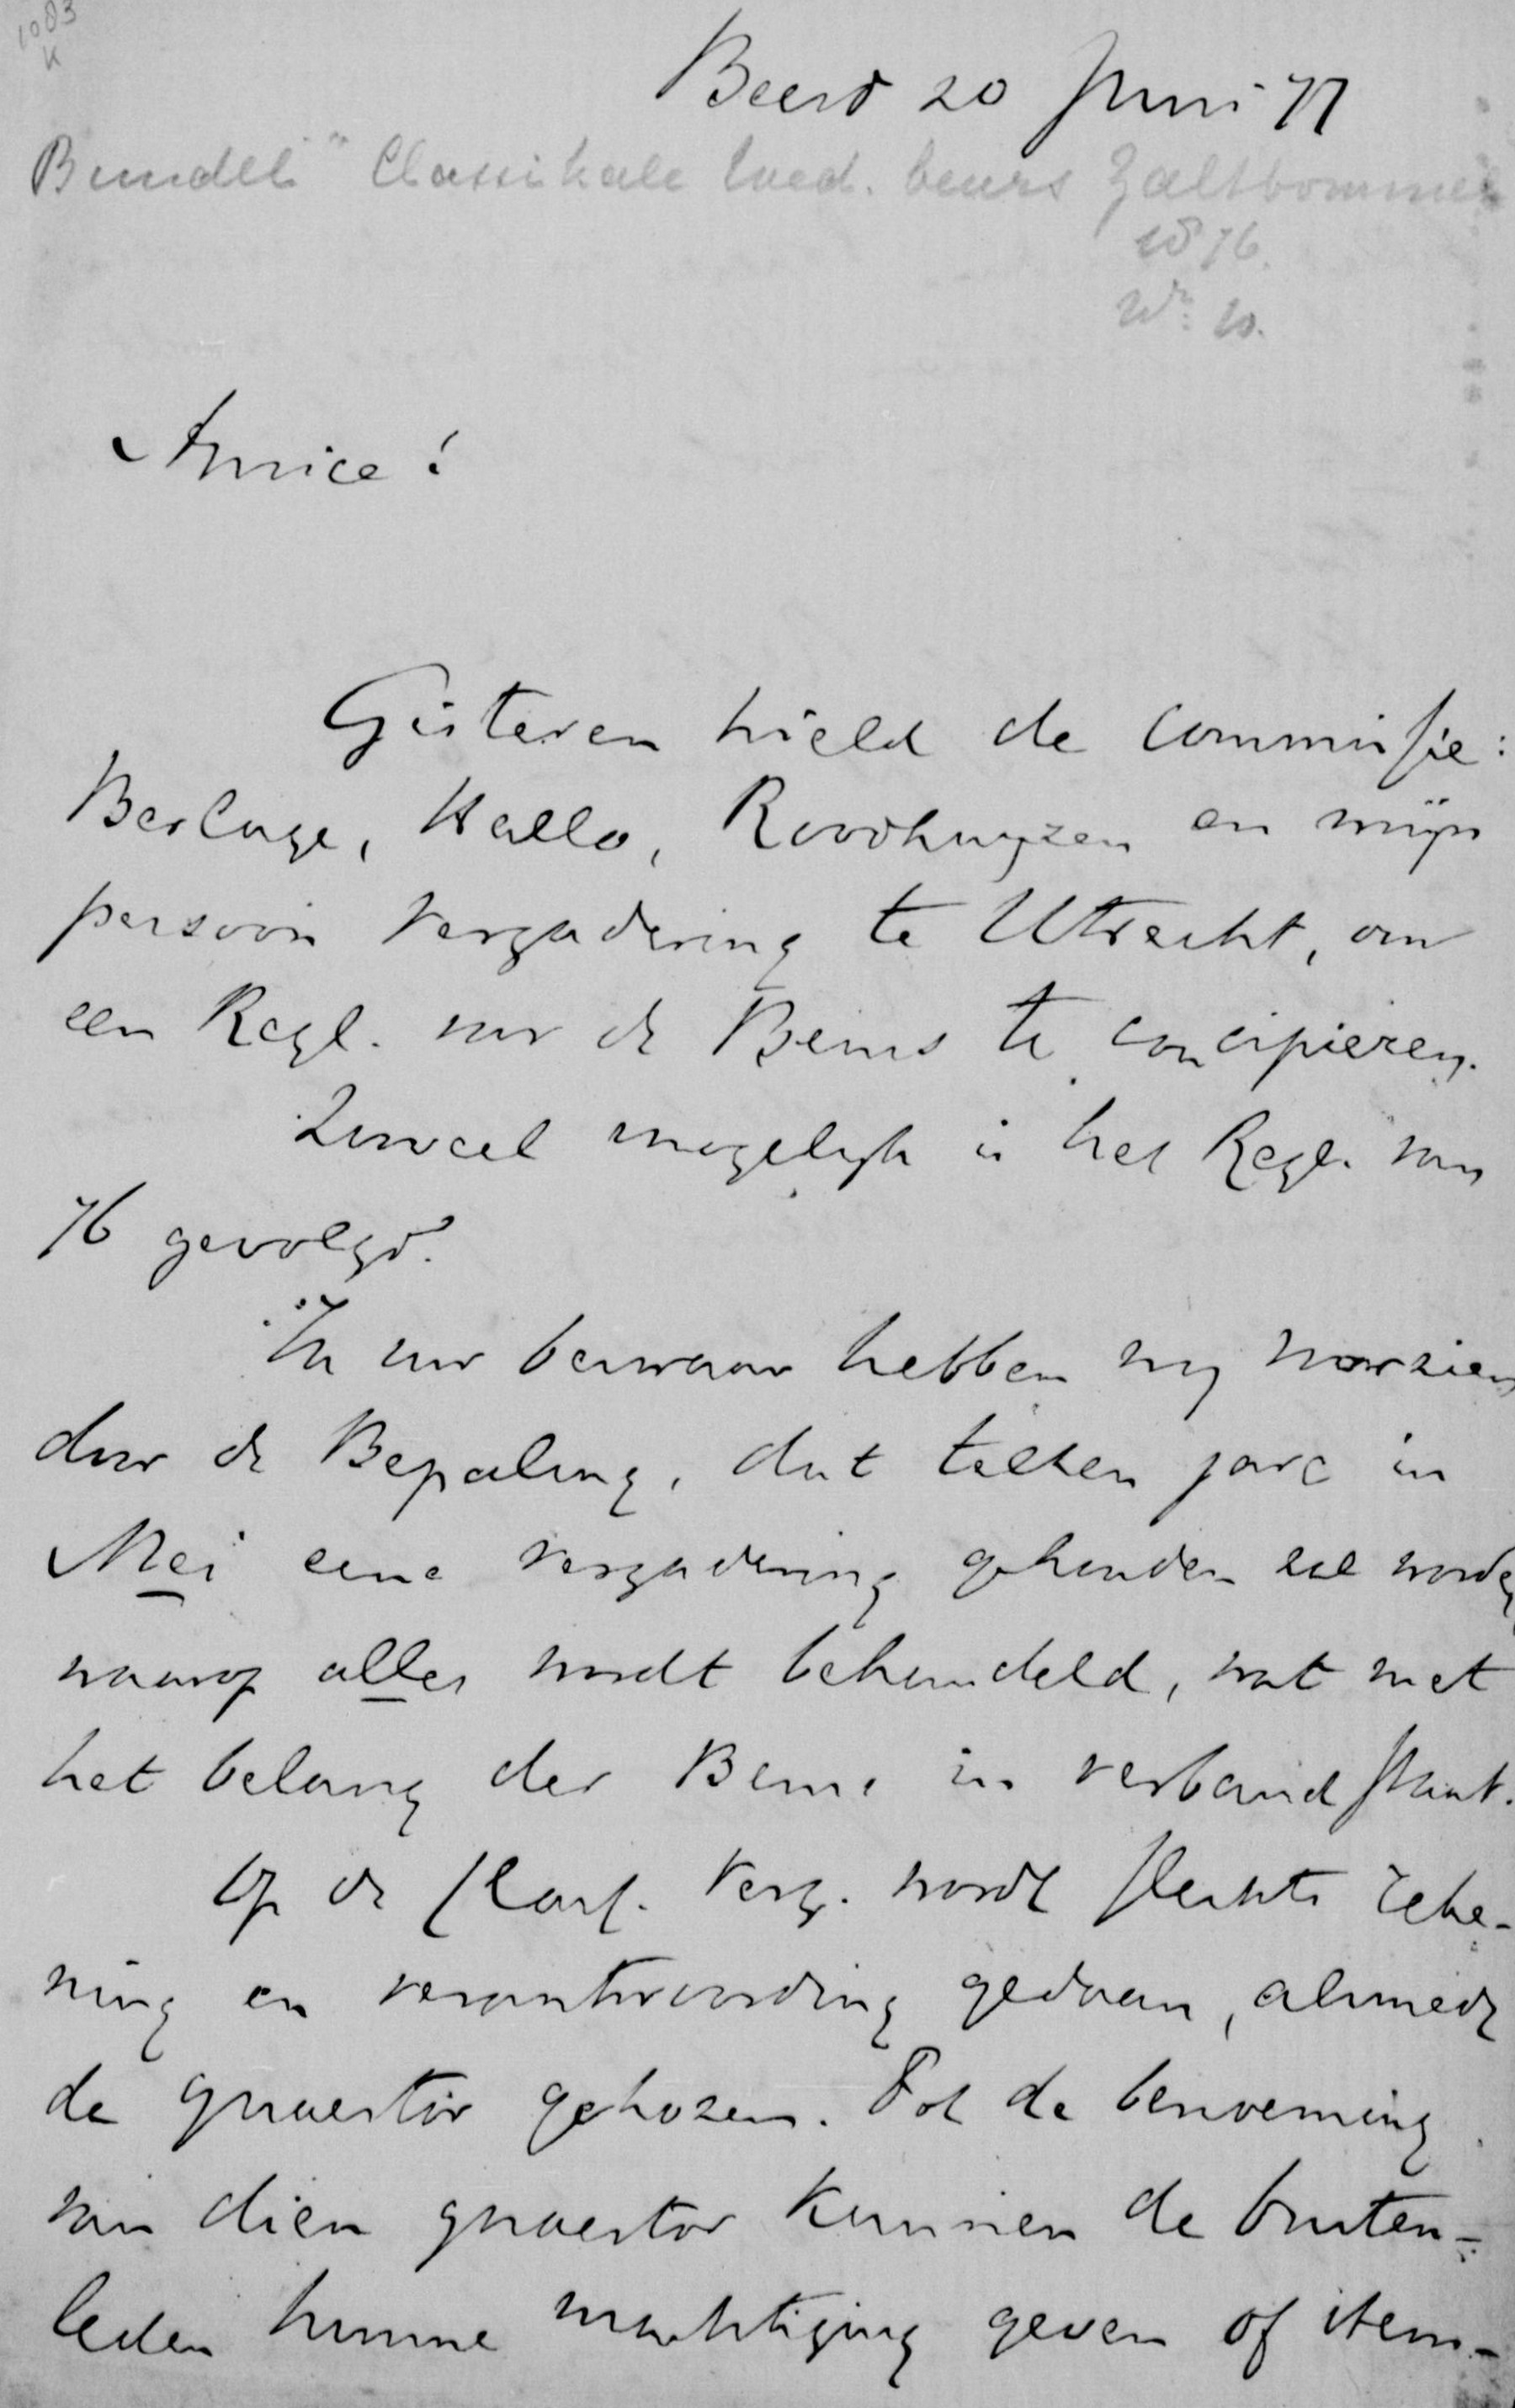 1003
K
Beesd 20 Juni 77
Bundel "Classikale Goed. beurs Zaltbommel
1876.
No. 10.
Amice!
Gisteren hield de Commissie:
Berlage, Hallo, Roodhuyzen en mijn
persoon vergadering te Utrecht, om
een Regl. voor de Beurs te concipieren.
Zooveel mogelijk is het Regl. van
76 gevolgd.
In uw bezwaar hebben wij voorzien
door de Bepaling, dat telken jare in
Mei eene vergadering gehouden zal worden
waarop alles wordt behandeld, wat met
het belang der Beurs in verband staat.
Op de Klass. Verg. wordt slechts reke-
ning en verantwoording gedaan, alsmede
de quaestor gekozen. Tot de benoeming
van dien quaestor kunnen de buiten-
leden hunne machtiging geven of stem-